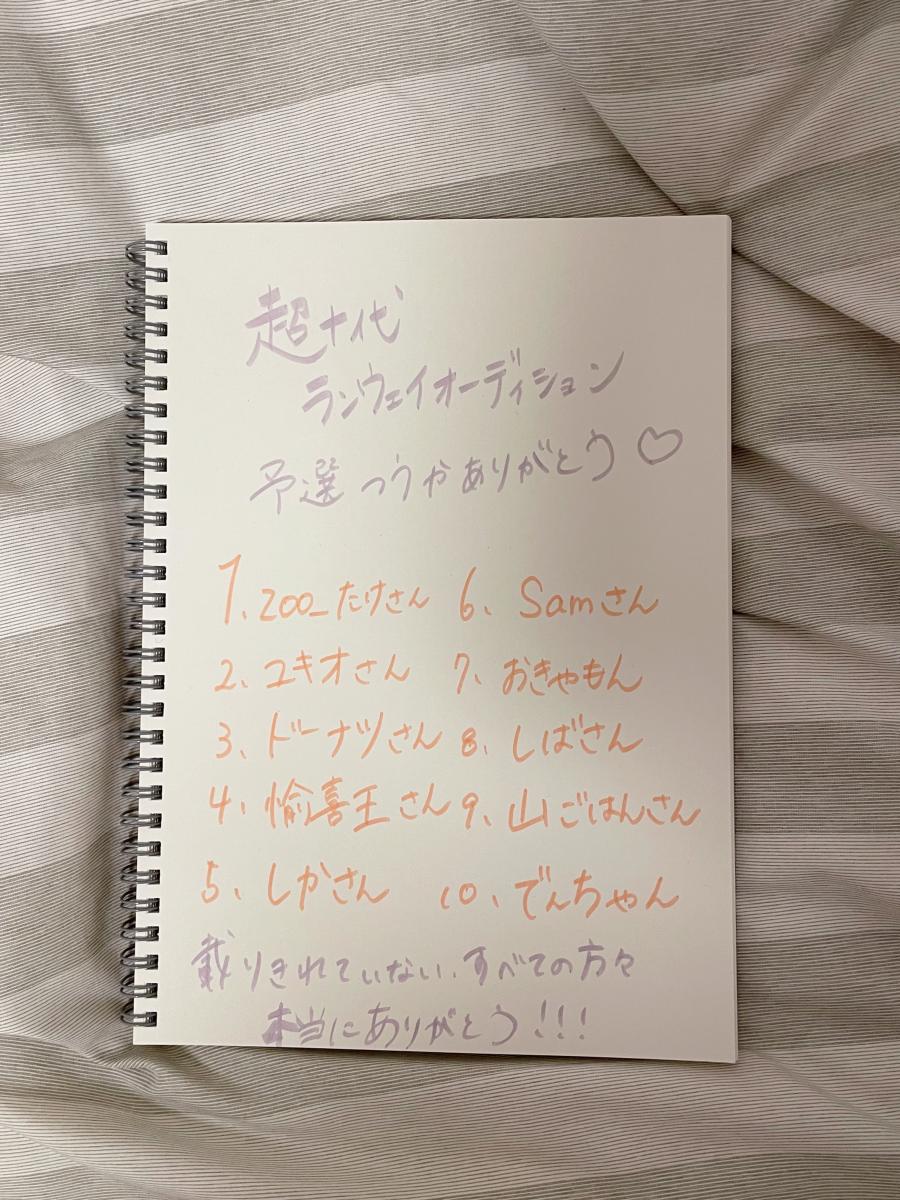 超十代
ランウェイオーディション
予選つうかありがとう♡
1、zoo_たけさん
2、ユキオさん
3、ドーナツさん
4、愉喜王さん
5、しかさん
6、Samさん
7、おきゃもん
8、しばさん
9、山ごはんさん
10、でんちゃん
載りきれていない、すべての方々
本当にありがとう!!!